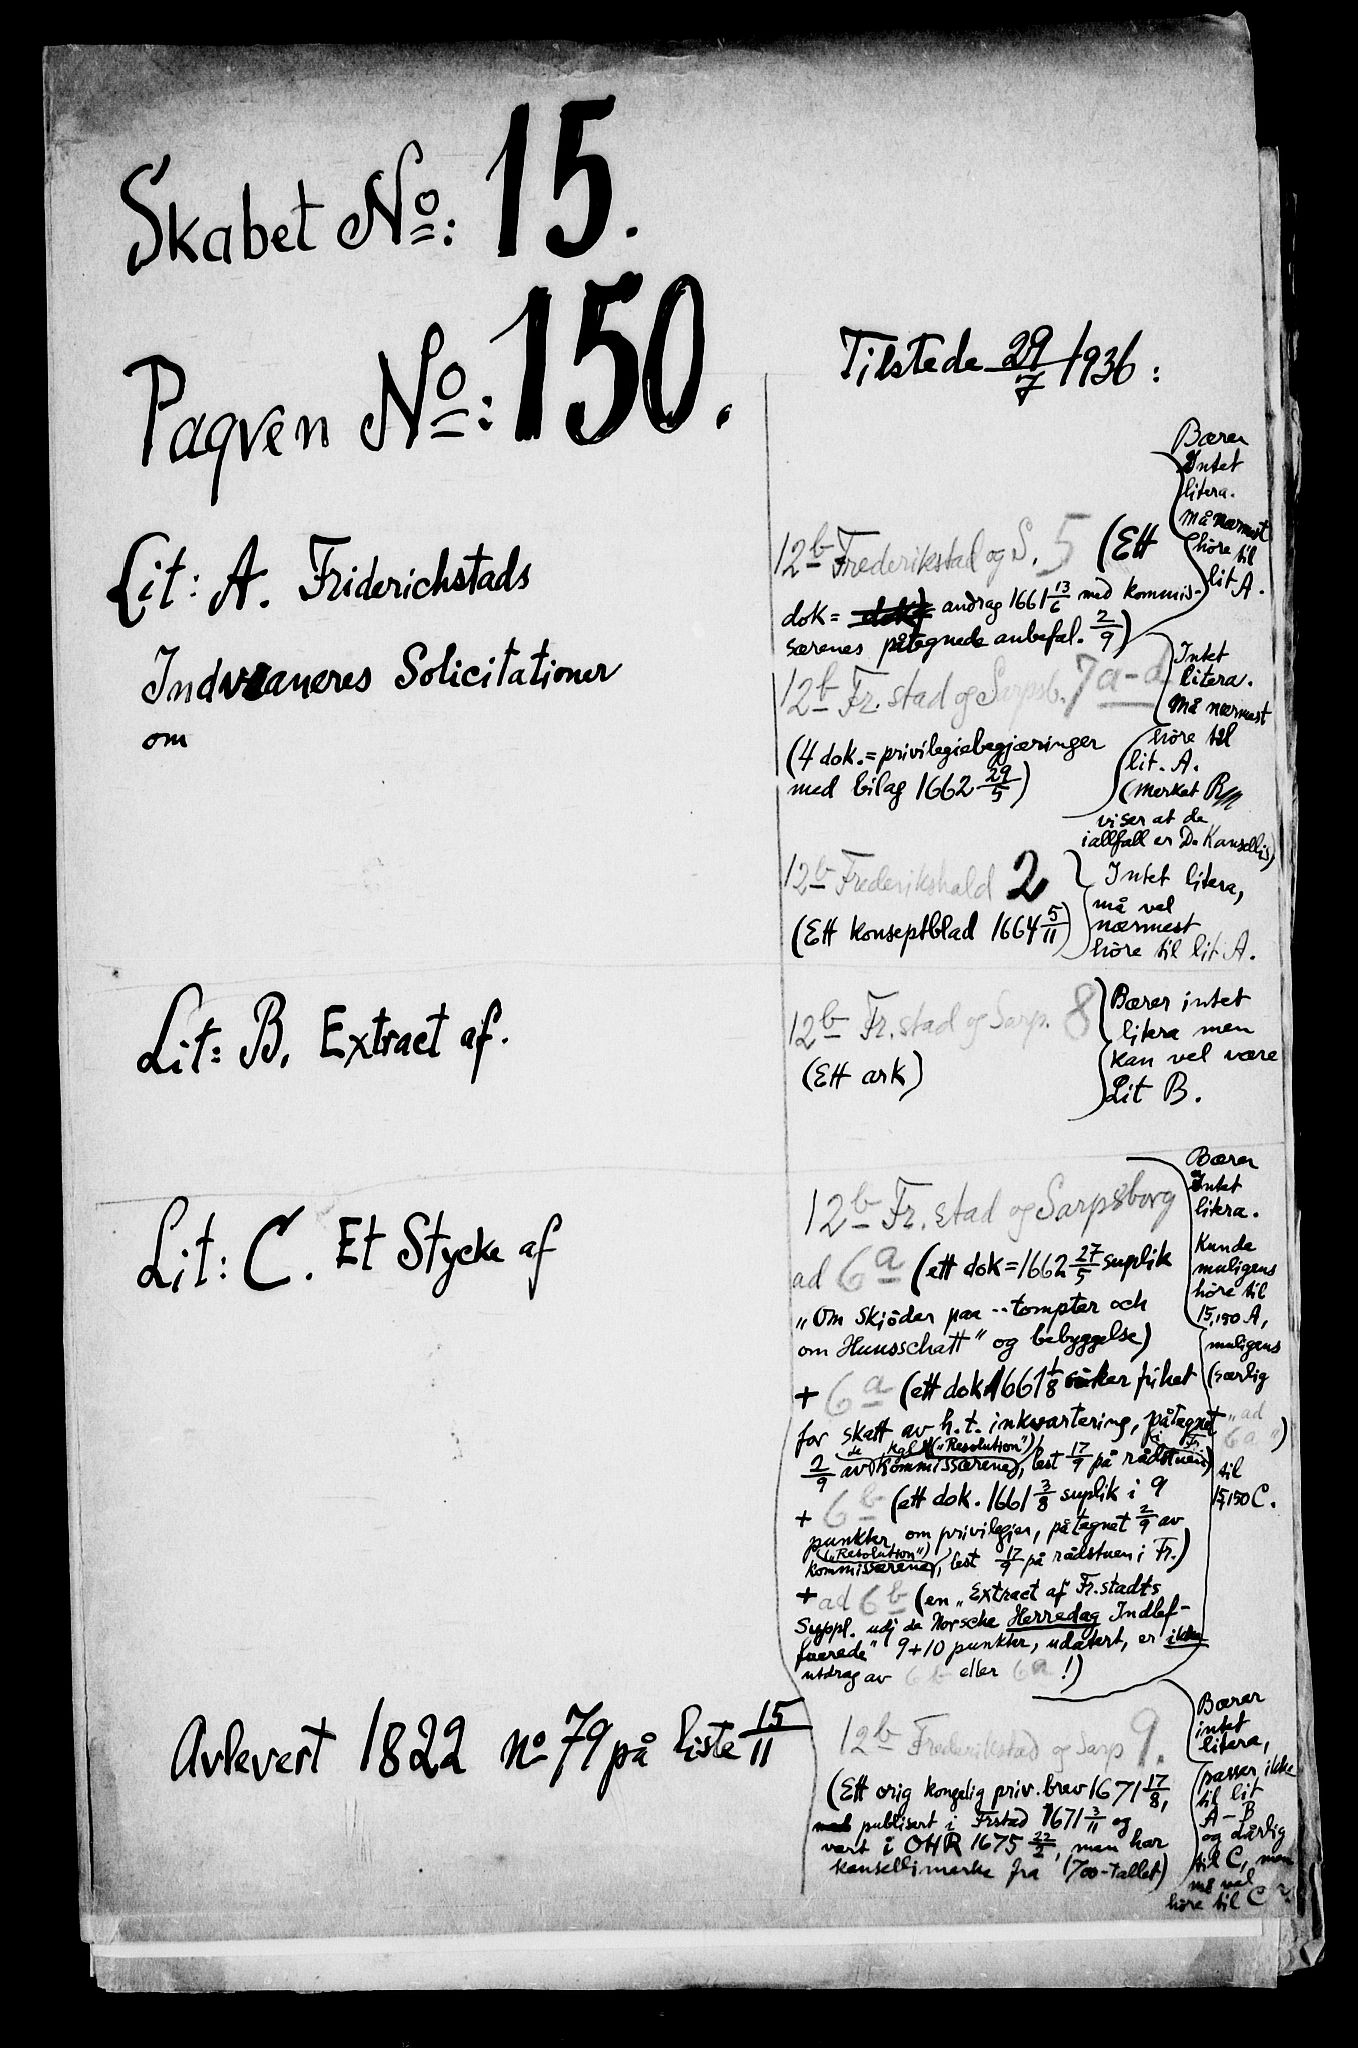 Skabet No: 15.
Paqven No: 150.
Lit: A. Friderichstads
Indvaaneres Solicitationer
om
Lit: B. Extract af.
Lit: C. Et Stycke af
Avlevert 1822 no 79 på liste 15/11
Tilstede 29/7 1936:
12b Frederikstad og S. 5 (Ett
dok= andrag 1661 13/6 med kommis-
særenes påtegnede anbefal. 2/9)
Bærer
Intet
litera.
Må nærmest
höre til
lit A.
12b Fr. stad og Sarpsb. 7a-d
(4 dok.= privilegiebegjæringer
med bilag 1662 29/5)
Intet
litera.
Må nærmest
höre til
lit. A.
(merket
viser at de
iallfall er D. Kansellis)
12b Frederikshald 2
(Ett konseptblad 1664 5/11)
Intet litera,
må vel
nærmest
höre til lit A.
12b Fr. stad og Sarp. 8
(Ett ark)
Bærer intet
litera men
kan vel være
Lit B.
12b Fr. stad og Sarpsborg
ad 6a (ett dok=1662 27/5 suplik
"Om Skjöder paa -- tompter och
om Huusschatt" og bebyggelse)
+ 6a (ett dok 1661 1/8 söker frihet
for skatt av h.t. inkvartering, påtegnet
2/9 av de kgl. kommissærene ("Resolution"), lest 17/9 på rådstuen i Fr.)
+ 6b (ett dok. 1661 3/8 suplik i 9
punkter om privilegier, påtegnet 2/9 av
kommissærene ("Resolution"), lest 17/9 på rådstuen i Fr.)
+ ad 6b (en "Extract af Fr.stadts
Suppl. udj de Norsche Herredag Indlef-
fuerede" 9+10 punkter, udatert, er ikke
utdrag av 6b eller 6a!)
Bærer
Intet
litera.
Kunde
muligens
höre til
15,150 A,
muligens
(særlig
"ad
6a")
til
15,150 C.
12b Frederikstad og Sarp 9.
(Ett orig kongelig priv. brev 1671 17/8,
publisert i Frstad 1671 3/11 og
vært i OHR 1675 22/2, men har
kansellimerke fra 1700-tallet)
Bærer
intet
litera,
passer ikke
til lit
A-B
og dårlig
til C, men
må vel
höre til C